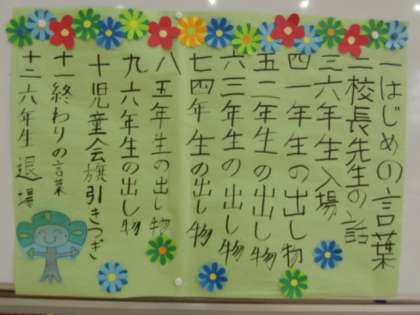 一はじめの言葉
二校長先生の話
三六年生入場
四一年生の出し物
五二年生の出し物
六三年生の出し物
七四年生の出し物
八五年生の出し物
九六年生の出し物
十児童会旗引きつぎ
十一終わりの言葉
十二六年生退場